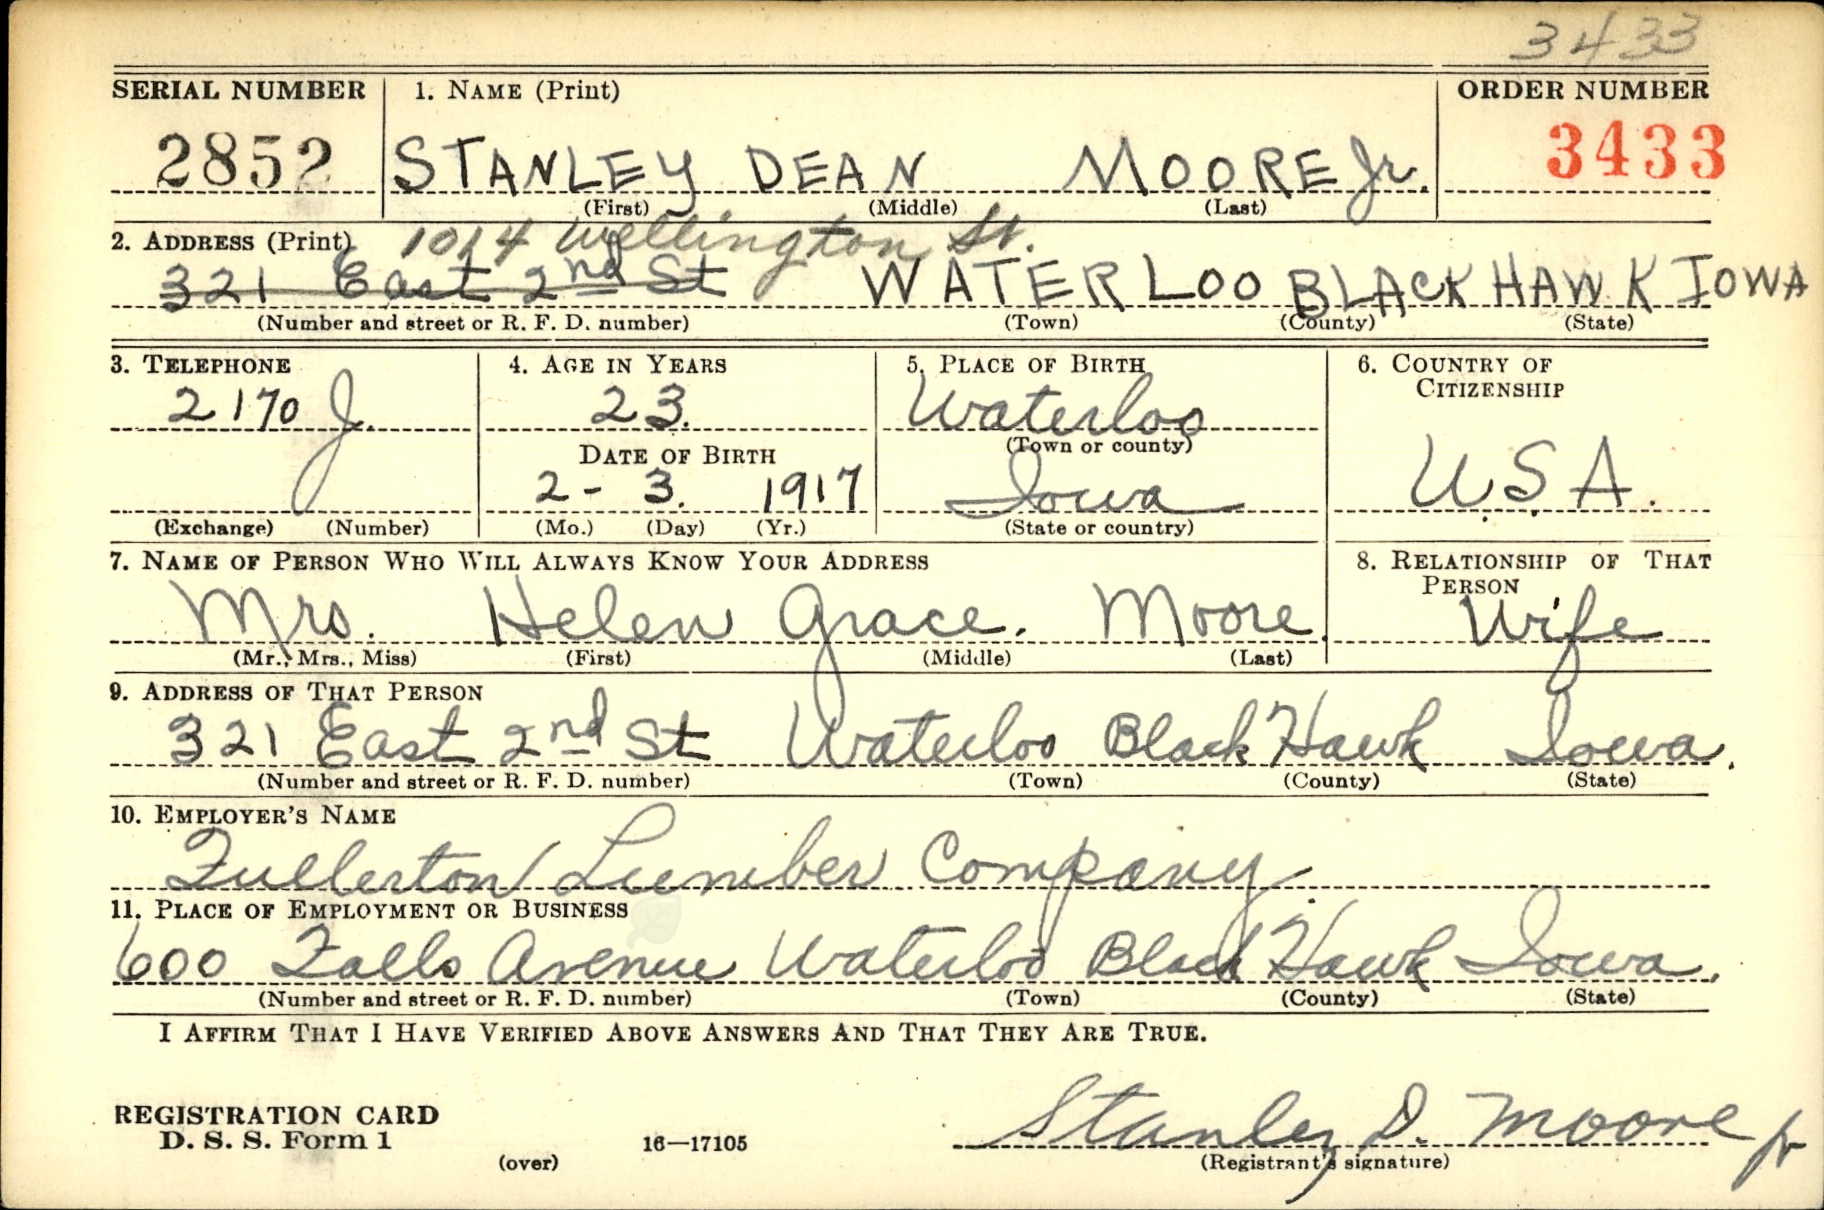 3433
SERIAL NUMBER 1. NAME (Print) ORDER NUMBER
2852 STANLEY DEAN MOORE Jr. 3433
(First) (Middle) (Last)
2. ADDRESS (Print) 1014 Wellington St.
321 East 2nd St WATERLOO BLACK HAWK IOWA
(Number and street or R. F. D. number) (Town) (County) (State)
3. TELEPHONE 4. AGE IN YEARS 5. PLACE OF BIRTH 6. COUNTRY OF CITIZENSHIP
2170 J. 23. Waterloo
DATE OF BIRTH (Town or county)
2 - 3. 1917 Iowa U.S.A.
(Exchange) (Number) (Mo.) (Day) (Yr.) (State or country)
7. NAME OF PERSON WHO WILL ALWAYS KNOW YOUR ADDRESS 8. RELATIONSHIP OF THAT PERSON
Mrs. Helen Grace. Moore. Wife
(Mr., Mrs., Miss) (First) (Middle) (Last)
9. ADDRESS OF THAT PERSON
321 East 2nd St Waterloo Black Hawk Iowa.
(Number and street or R. F. D. number) (Town) (County) (State)
10. EMPLOYER'S NAME
Fullerton Lumber Company.
11. PLACE OF EMPLOYMENT OR BUSINESS
600 Falls Avenue Waterloo Black Hawk Iowa.
(Number and street or R. F. D. number) (Town) (County) (State)
I AFFIRM THAT I HAVE VERIFIED ABOVE ANSWERS AND THAT THEY ARE TRUE.
REGISTRATION CARD
D. S. S. Form 1 16—17105 Stanley D. Moore Jr
(over) (Registrant's signature)